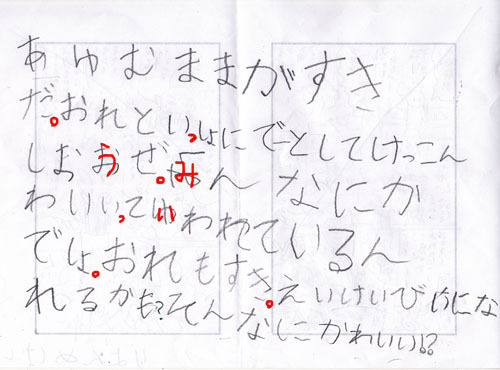 あゆむままがすき
だ。おれといっしょにでーとしてけっこん
しおおうぜ。みんなにか
わいいっていわれているん
でしょ。おれもすき。えいけいびいにな
れるかも?そんなにかわいい!?